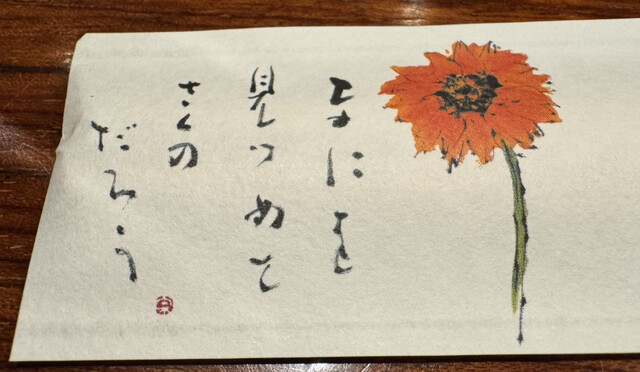 なにを
見つめて
さくの
だろう